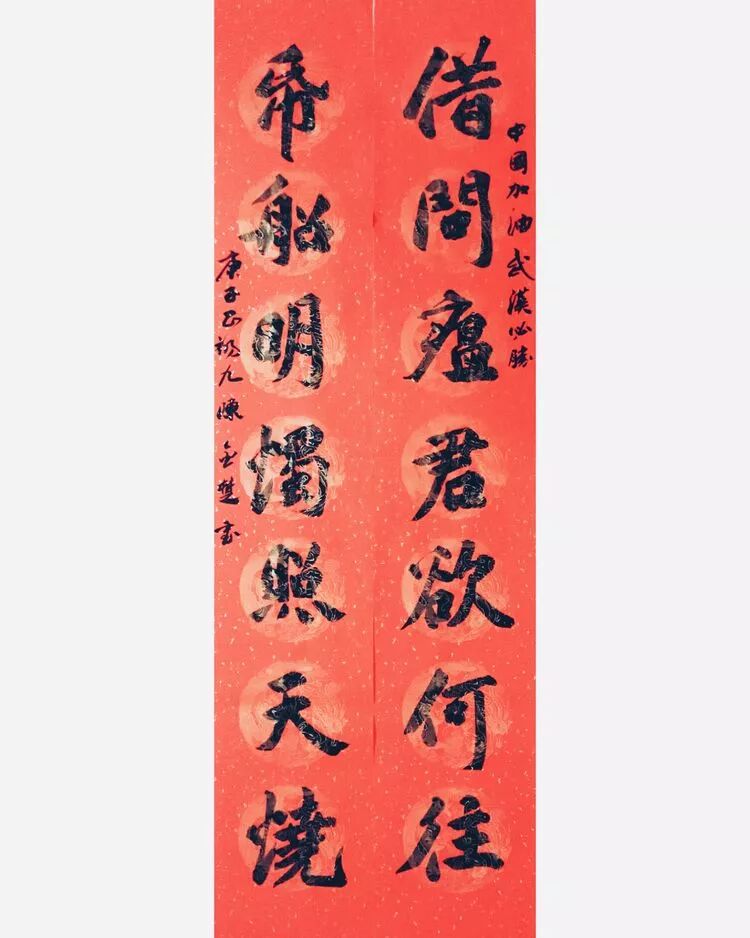 中國加油武漢必勝
借問瘟君欲何往
帋船明燭照天燒
庚子正初九陳金楚書